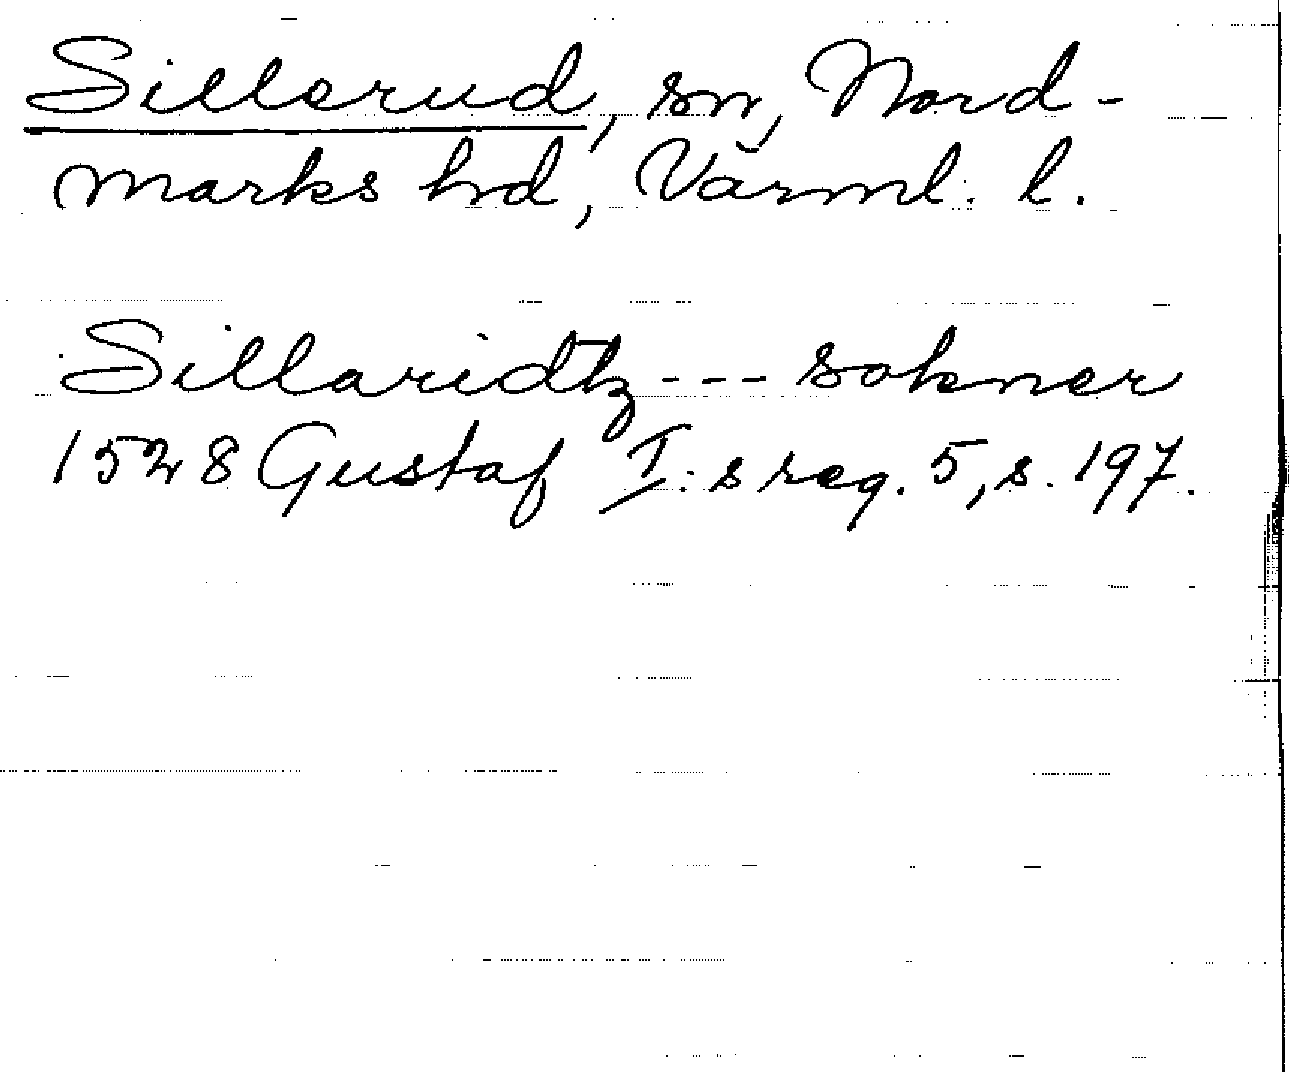 Sillerud, sn, Nord-
marks hd, Värml. l.
Sillaridtz --- sokner
1528 Gustaf I:s reg. 5, s. 197.